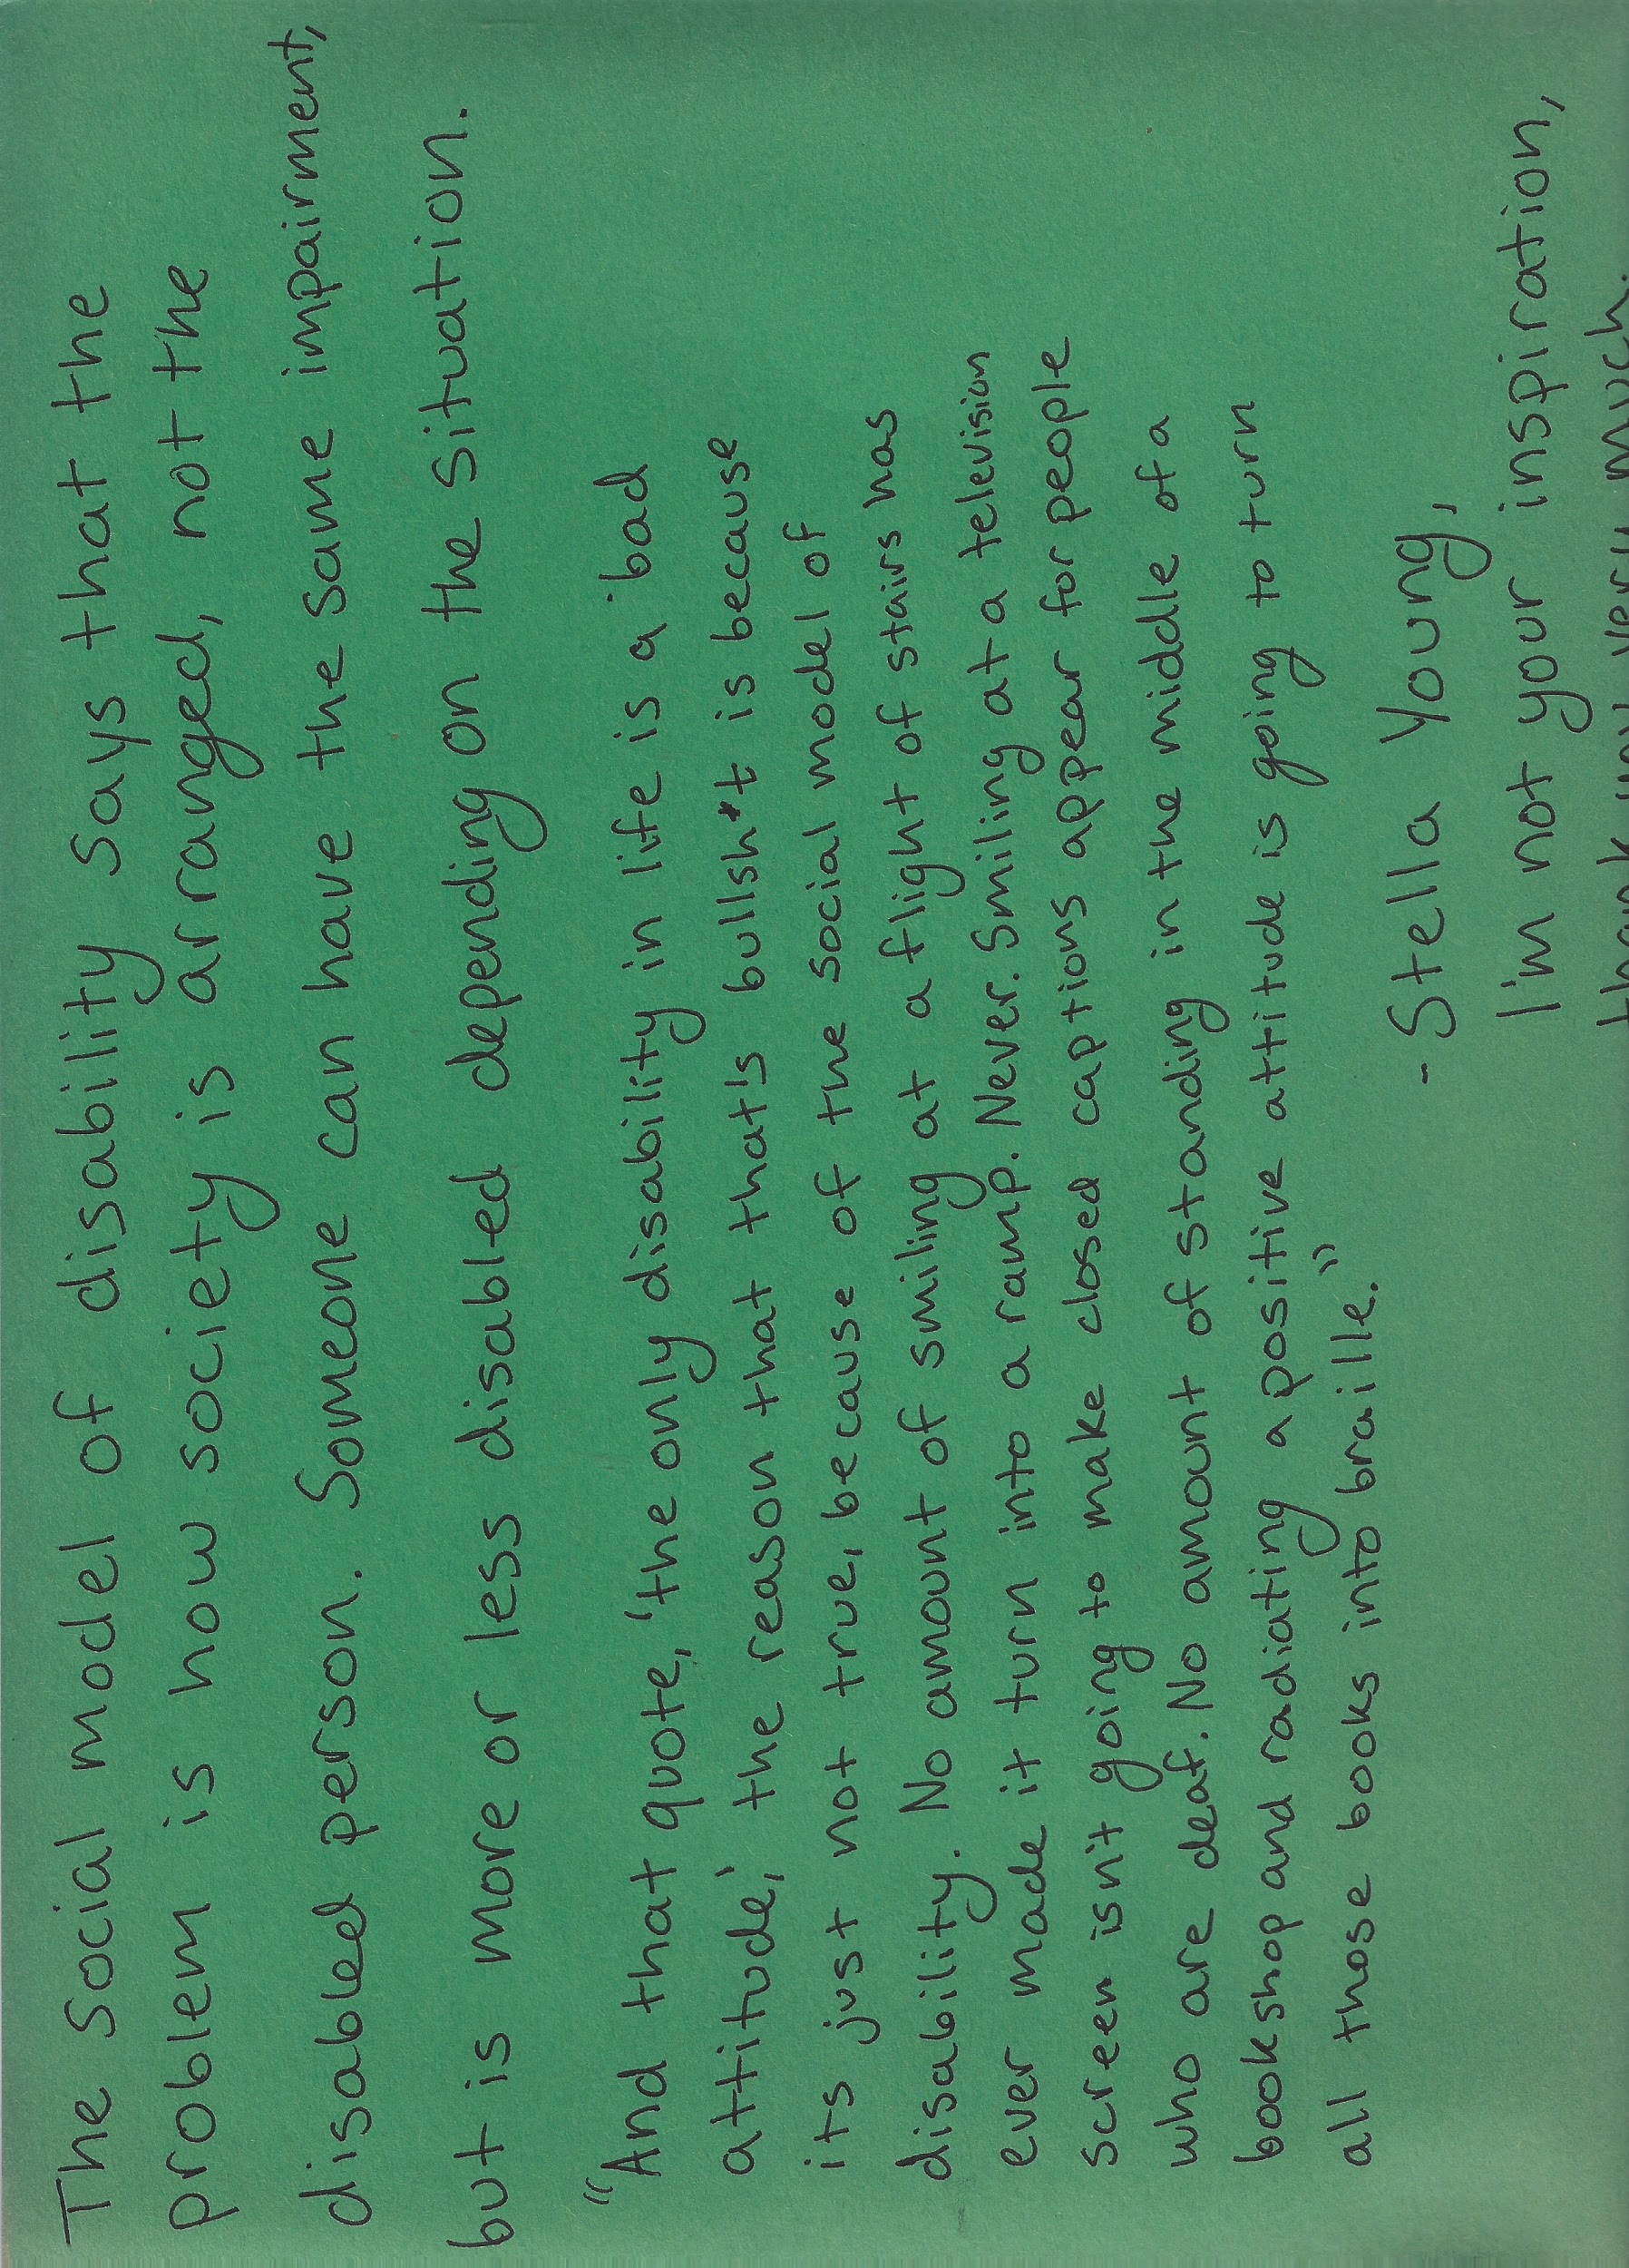 The social model of disability says that the
problem is how society is arranged, not the
disabled person. Someone can have the same impairment,
but is more or less disabled depending on the situation.
"And that quote, 'the only disability in life is a 'bad
attitude,' the reason that that's bullsh*t is because
its just not true, because of the social model of
disability. No amount of smiling at a flight of stairs has
ever made it turn into a ramp. Never. Smiling at a television
screen isn't going to make closed captions appear for people
who are deaf. No amount of standing in the middle of a
bookshop and radiating a positive attitude is going to turn
all those books into braille."
- Stella Young,
I'm not your inspiration,
thank you very much.